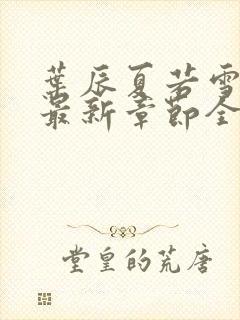 葉辰夏若雪
最新章節全
堂皇的荒唐